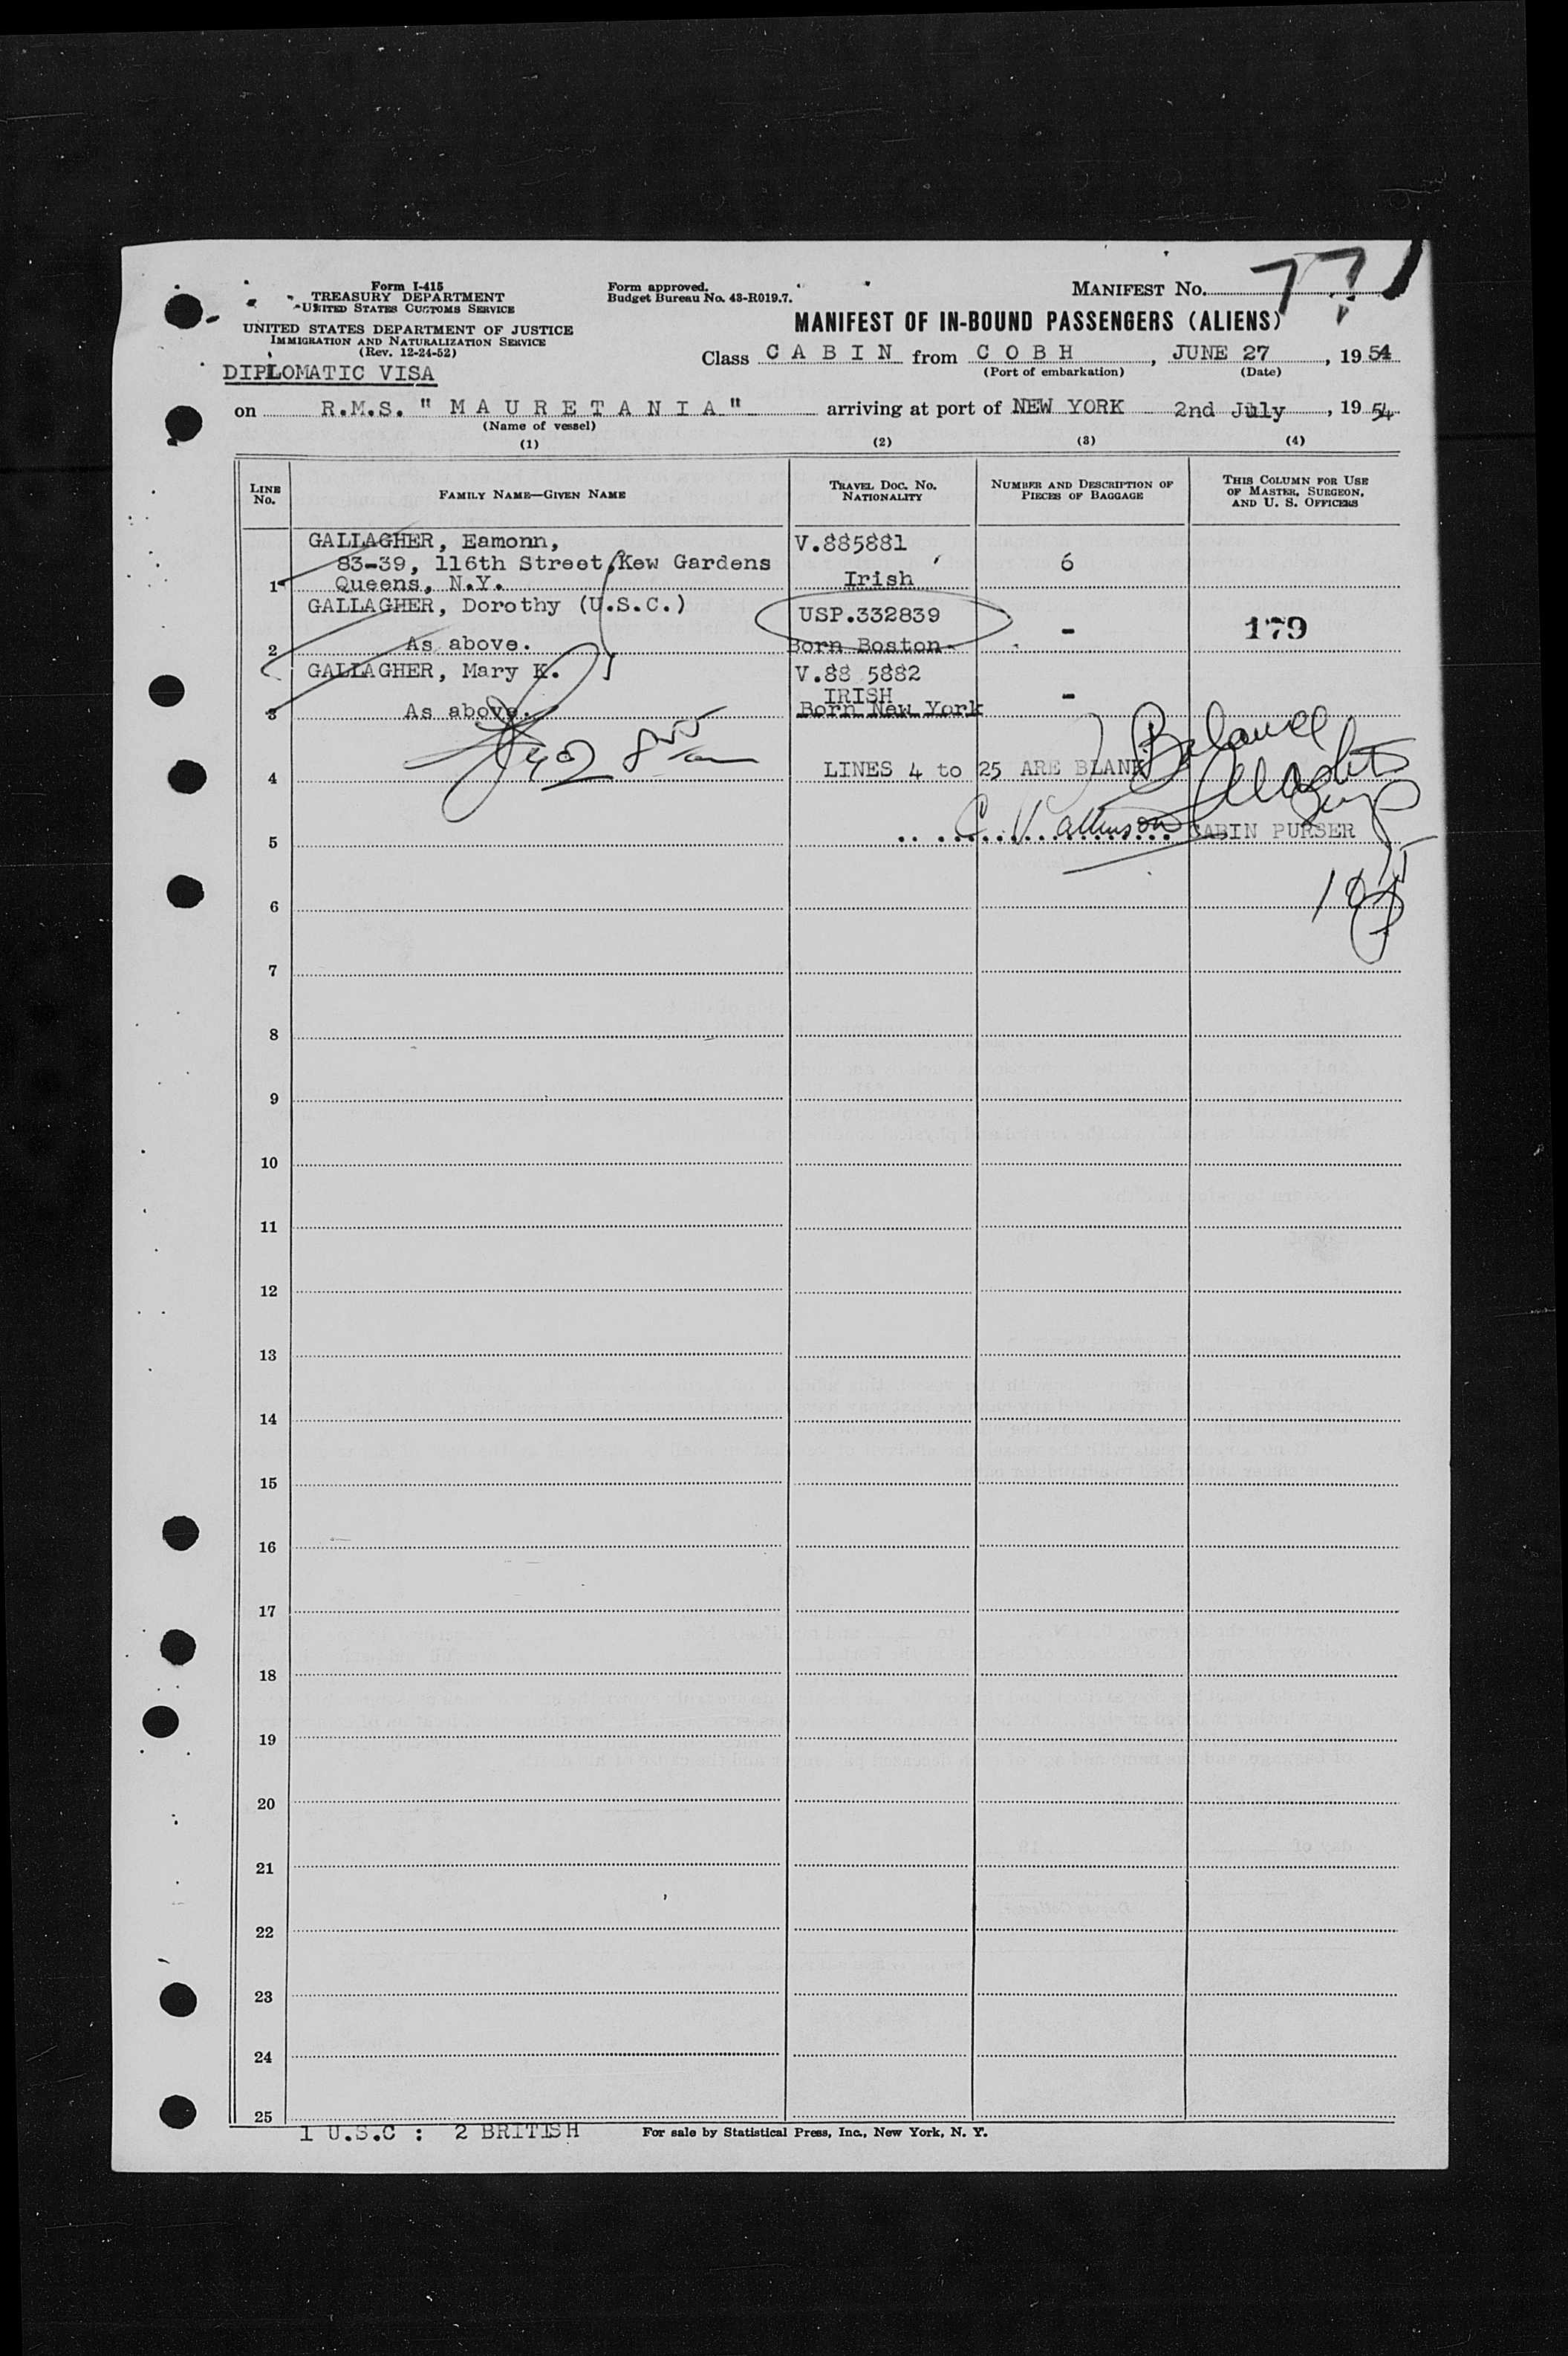 Form I-415
TREASURY DEPARTMENT
UNITED STATES CUSTOMS SERVICE
UNITED STATES DEPARTMENT OF JUSTICE
IMMIGRATION AND NATURALIZATION SERVICE
(Rev. 12-24-52)
DIPLOMATIC VISA
Form approved.
Budget Bureau No. 43-R019.7.
MANIFEST NO. 77
MANIFEST OF IN-BOUND PASSENGERS (ALIENS)
Class C A B I N from C O B H, JUNE 27, 1954
(Port of embarkation) (Date)
on R.M.S. " M A U R E T A N I A " arriving at port of NEW YORK 2nd July, 1954
(Name of vessel)
(1) (2) (3) (4)
LINE No. FAMILY NAME—GIVEN NAME TRAVEL DOC. NO. NATIONALITY NUMBER AND DESCRIPTION OF PIECES OF BAGGAGE THIS COLUMN FOR USE OF MASTER, SURGEON, AND U. S. OFFICERS
GALLAGHER, Eamonn, V.885881
83-39, 116th Street, Kew Gardens 6
1 Queens, N.Y. Irish
GALLAGHER, Dorothy (U.S.C.) USP.332839 - 179
2 As above. Born Boston
GALLAGHER, Mary K. V.88 5882
IRISH -
3 As above. Born New York
Balance
4 LINES 4 to 25 ARE BLANK
5 C. V. Atkinson CABIN PURSER
6
7
8
9
10
11
12
13
14
15
16
17
18
19
20
21
22
23
24
25
1 U.S.C : 2 BRITISH For sale by Statistical Press, Inc., New York, N. Y.